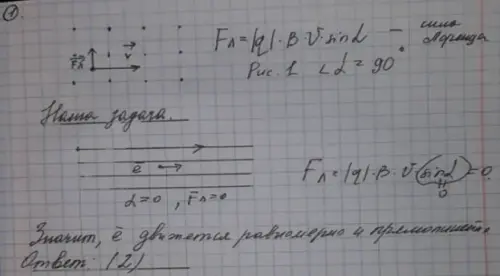 1.
Fл = |q|·B·V·sinα — сила Лоренца
Fл V
Рис. 1 ∠α = 90°
Наша задача.
e̅ →
Fл = |q|·B·V·sinα = 0
0
α = 0, Fл = 0
Значит, e̅ движется равномерно и прямолиней.
Ответ: (2)